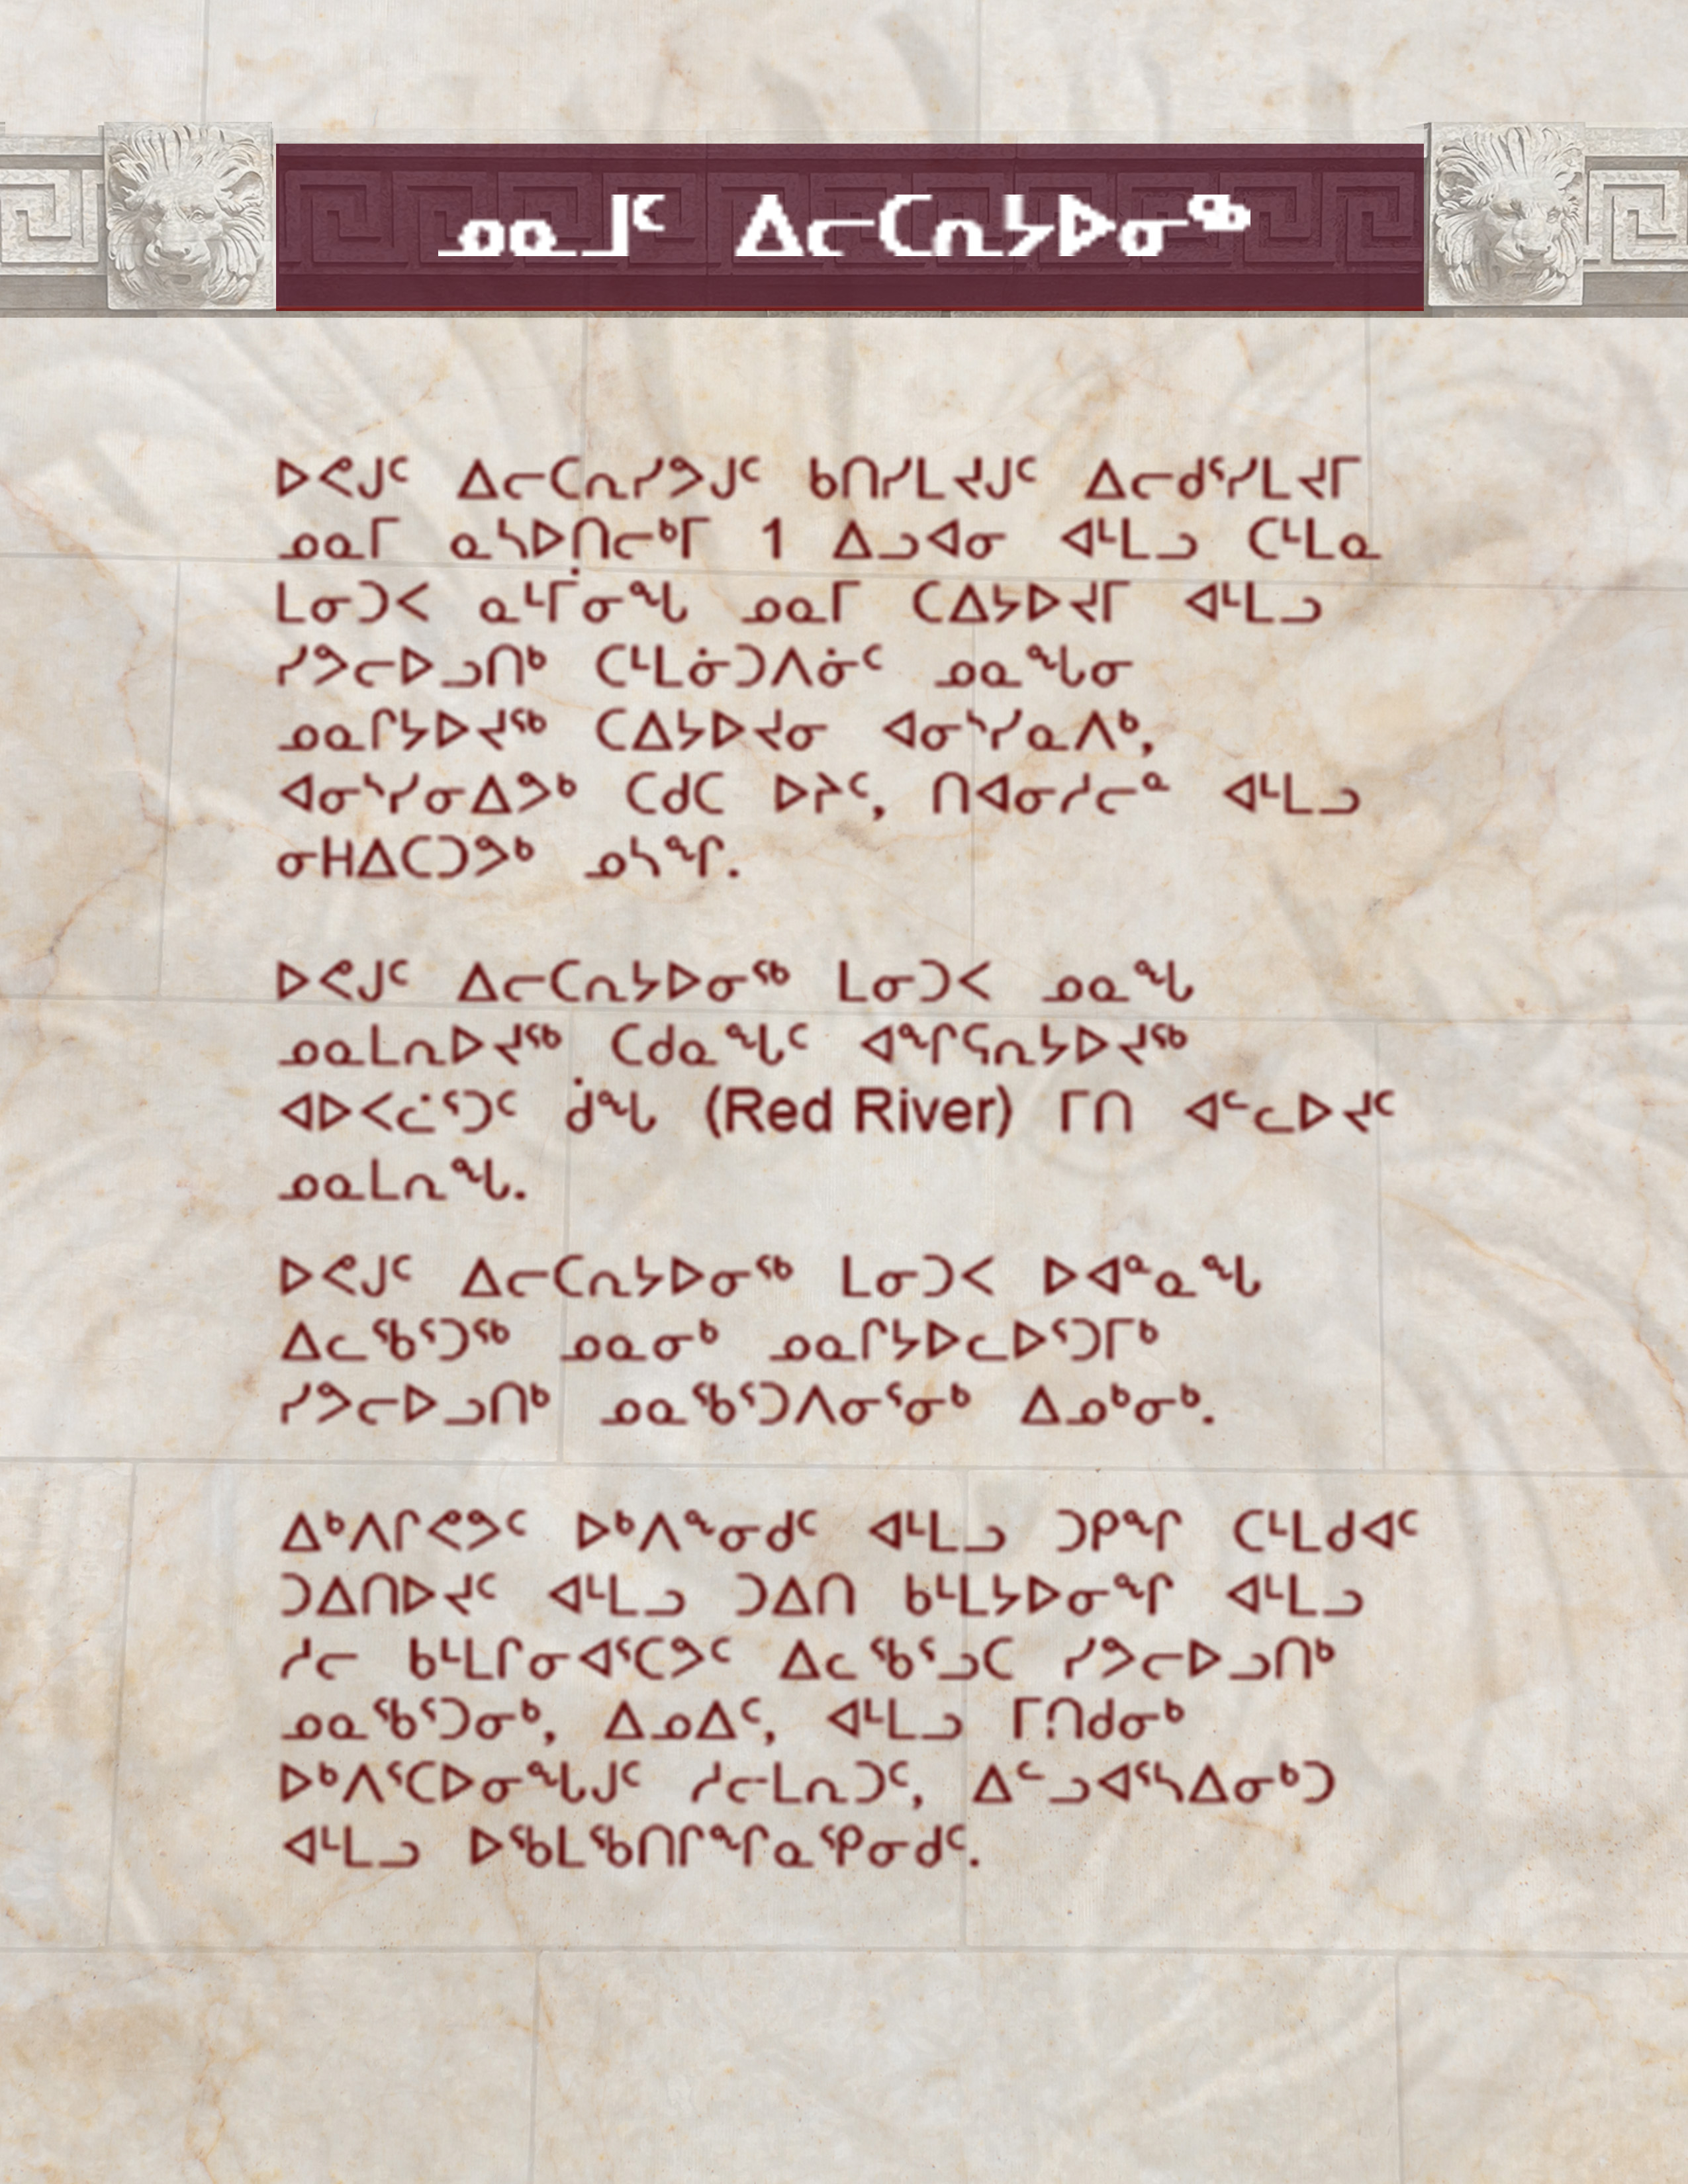 ᓄᓇᒧᑦ ᐃᓕᑕᕆᔭᐅᓂᖅ
ᐅᕙᒍᑦ ᐃᓕᑕᕆᓯᕗᒍᑦ ᑲᑎᓯᒪᔪᒍᑦ ᐃᓕᑯᕐᓯᒪᔪᒥ
ᓄᓇᒥ ᓇᓴᐅᑎᓕᒃᒥ 1 ᐃᓗᐊᓂ ᐊᒻᒪᓗ ᑕᒻᒪᓇ
ᒪᓂᑐᐸ ᓇᒻᒦᓂᖓ ᓄᓇᒥ ᑕᐃᔭᐅᔪᒥ ᐊᒻᒪᓗ
ᓯᕗᓕᐅᓗᑎᒃ ᑕᒻᒪᓃᑐᐱᓃᑦ ᓄᓇᖓᓂ
ᓄᓇᒋᔭᐅᔪᖅ ᑕᐃᔭᐅᔪᓂ ᐊᓂᔅᓯᓇᐱᒃ,
ᐊᓂᔅᓯᓂᐃᕗᒃ ᑕᑯᑕ ᐅᔩᑦ, ᑎᐊᓂᓰᓕᓐ ᐊᒻᒪᓗ
ᓂᕼᐃᑕᑐᕗᒃ ᓄᓴᖏ.
ᐅᕙᒍᑦ ᐃᓕᑕᕆᔭᐅᓂᖅ ᒪᓂᑐᐸ ᓄᓇᖓ
ᓄᓇᒪᕆᐅᔪᖅ ᑕᑯᓇᖓᑦ ᐊᖏᕋᕆᔭᐅᔪᖅ
ᐊᐅᐸᓛᕐᑐᑦ ᑰᖓ (Red River) ᒥᑎ ᐊᓪᓚᐅᔪᑦ
ᓄᓇᒪᕆᖓ.
ᐅᕙᒍᑦ ᐃᓕᑕᕆᔭᐅᓂᖅ ᒪᓂᑐᐸ ᐅᐊᓐᓇᖓ
ᐃᓚᖃᕐᑐᖅ ᓄᓇᓂᒃ ᓄᓇᒋᔭᐅᓚᐅᕐᑐᒥᒃ
ᓯᕗᓕᐅᓗᑎᒃ ᓄᓇᖃᕐᑐᐱᓂᕐᓂᒃ ᐃᓄᒃᓂᒃ.
ᐃᒃᐱᒋᕙᕗᑦ ᐅᒃᐱᖕᓂᑯᑦ ᐊᒻᒪᓗ ᑐᑭᖏ ᑕᒻᒪᑯᐊᑦ
ᑐᐃᑎᐅᔪᑦ ᐊᒻᒪᓗ ᑐᐃᑎ ᑲᒻᒪᔭᐅᓂᖏ ᐊᒻᒪᓗ
ᓰᓕ ᑲᒻᒪᒋᓂᐊᕐᑕᕗᑦ ᐃᓚᖃᕐᓗᑕ ᓯᕗᓕᐅᓗᑎᒃ
ᓄᓇᖃᕐᑐᓂᒃ, ᐃᓄᐃᑦ, ᐊᒻᒪᓗ ᒥᑎᑯᓂᒃ
ᐅᒃᐱᕐᑕᐅᓂᖓᒍᑦ ᓰᓕᒪᕆᑐᑦ, ᐃᓪᓗᐊᕐᓴᐃᓂᒃᑐ
ᐊᒻᒪᓗ ᐅᖃᒪᖃᑎᒋᖏᓇᕿᓂᑯᑦ.